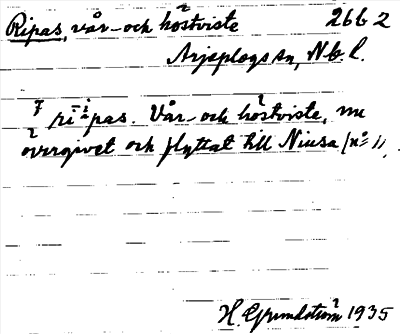 Ripas, vår- och höstviste 2662
Arjeplogs sn, Nb. l.
ri'pas. Vår- och höstviste, nu
övergivet och flyttat till Niusa (n:o 1).
H. Grundström 1935